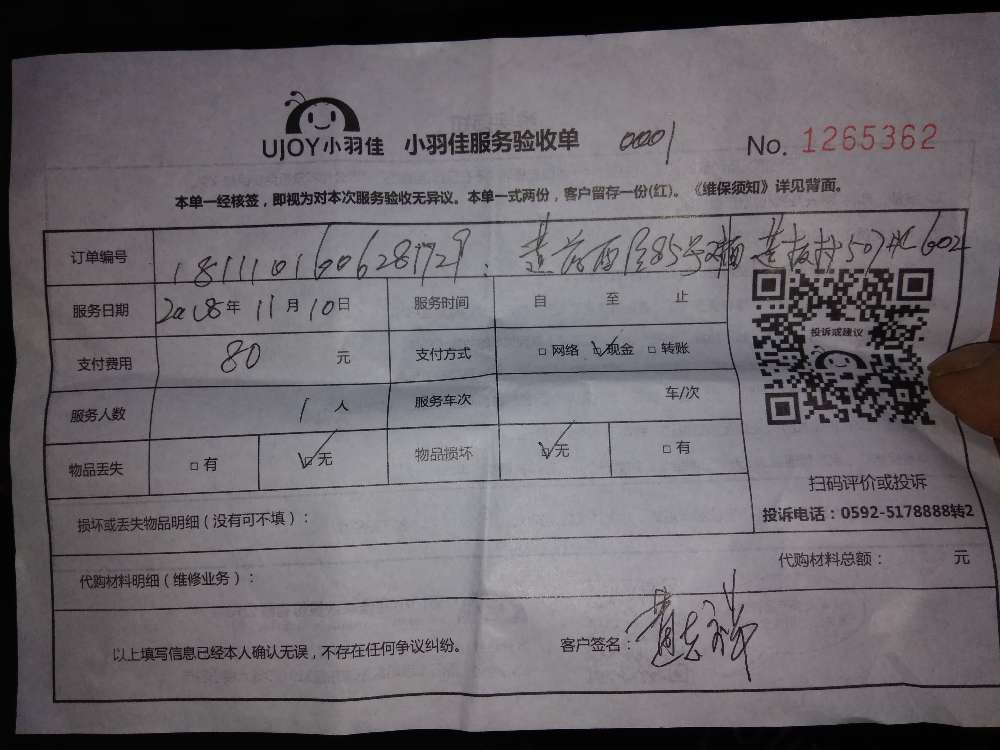 UJOY小羽佳 小羽佳服务验收单 0001 No. 1265362
本单一经核签，即视为对本次服务验收无异议。本单一式两份，客户留存一份(红)。《维保须知》详见背面。
订单编号
服务日期 2018年 11月 10日 服务时间 自 至 止
投诉或建议
支付费用 80 元 支付方式 □网络 ☑现金 □转账
服务人数 1 人 服务车次 车/次
物品丢失 □有 ☑无 物品损坏 ☑无 □有
扫码评价或投诉
投诉电话：0592-5178888转2
损坏或丢失物品明细（没有可不填）：
代购材料明细（维修业务）： 代购材料总额： 元
以上填写信息已经本人确认无误，不存在任何争议纠纷。 客户签名：